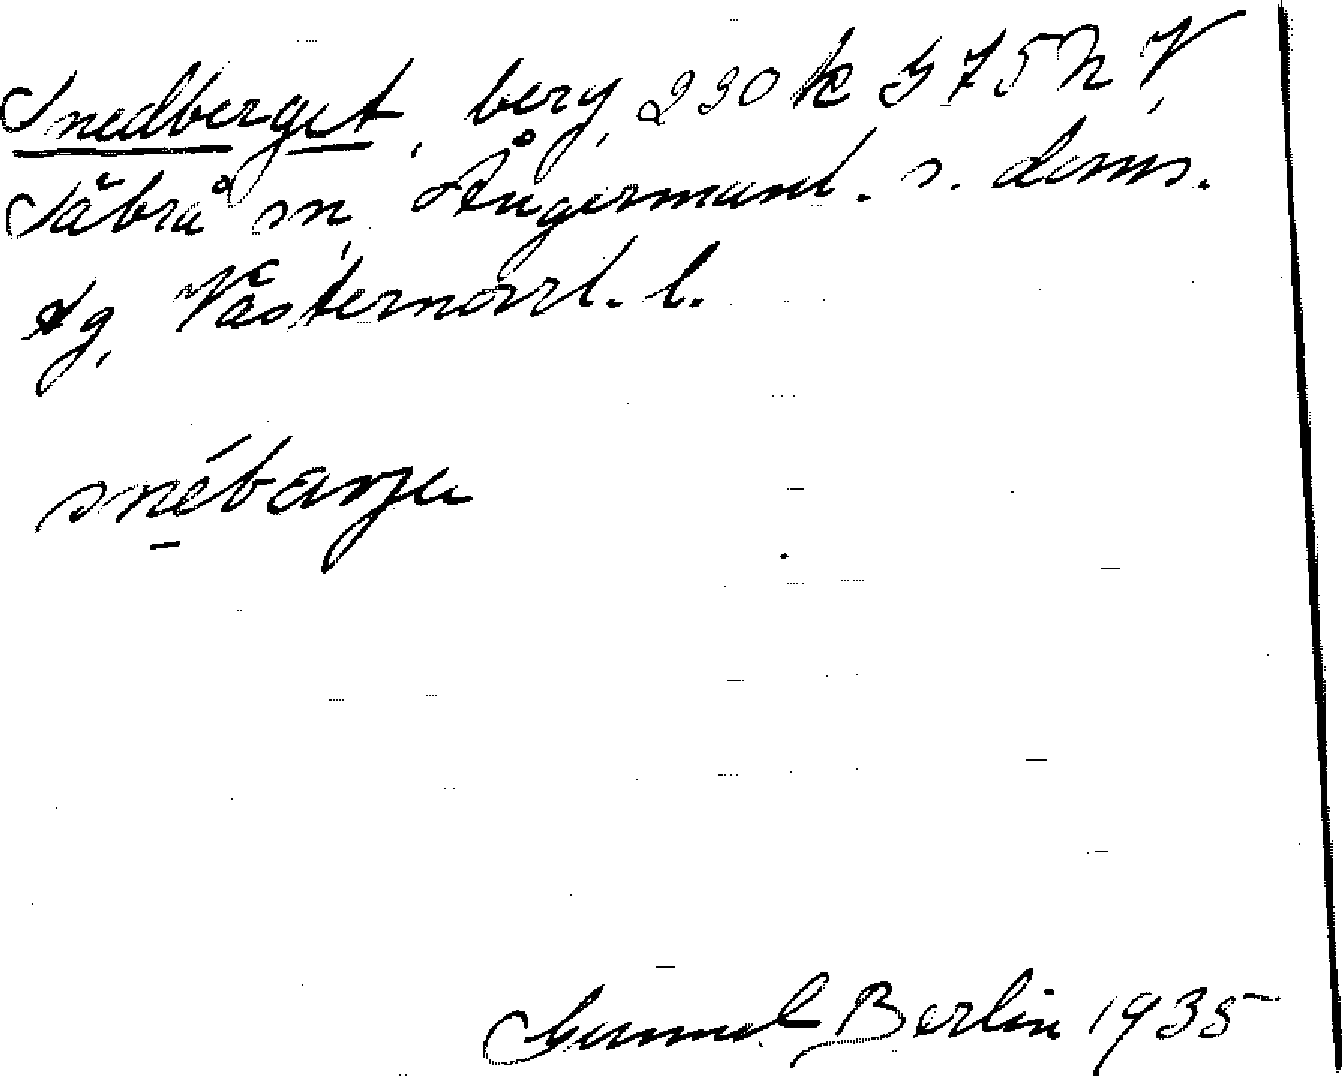 Snedberget, berg, 230 k G 75 h V,
Säbrå sn, Ångermanl. s. doms.
tg, Västernorrl. l.
snébarju
Gunnel Berlin 1935